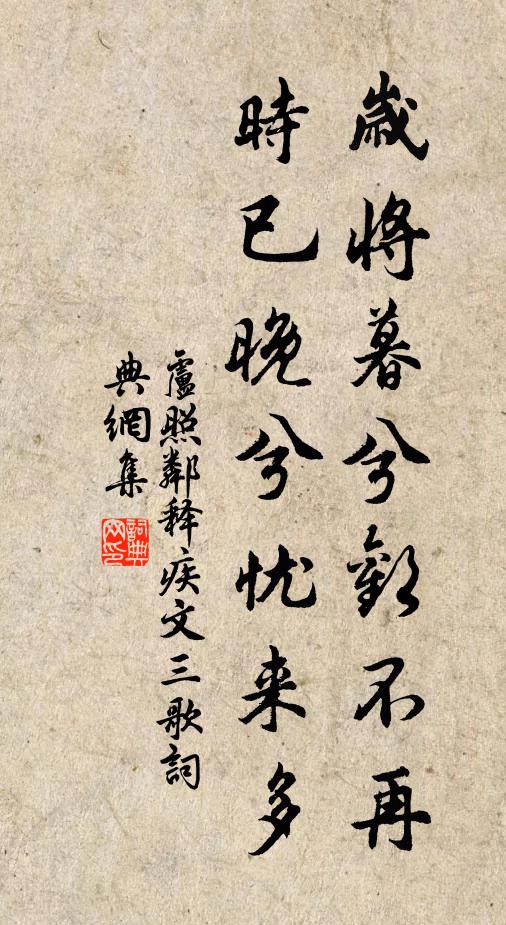 歲將暮兮歡不再
時已晚兮忧来多
盧照鄰释疾文三歌詞
典網集
詞典
网印